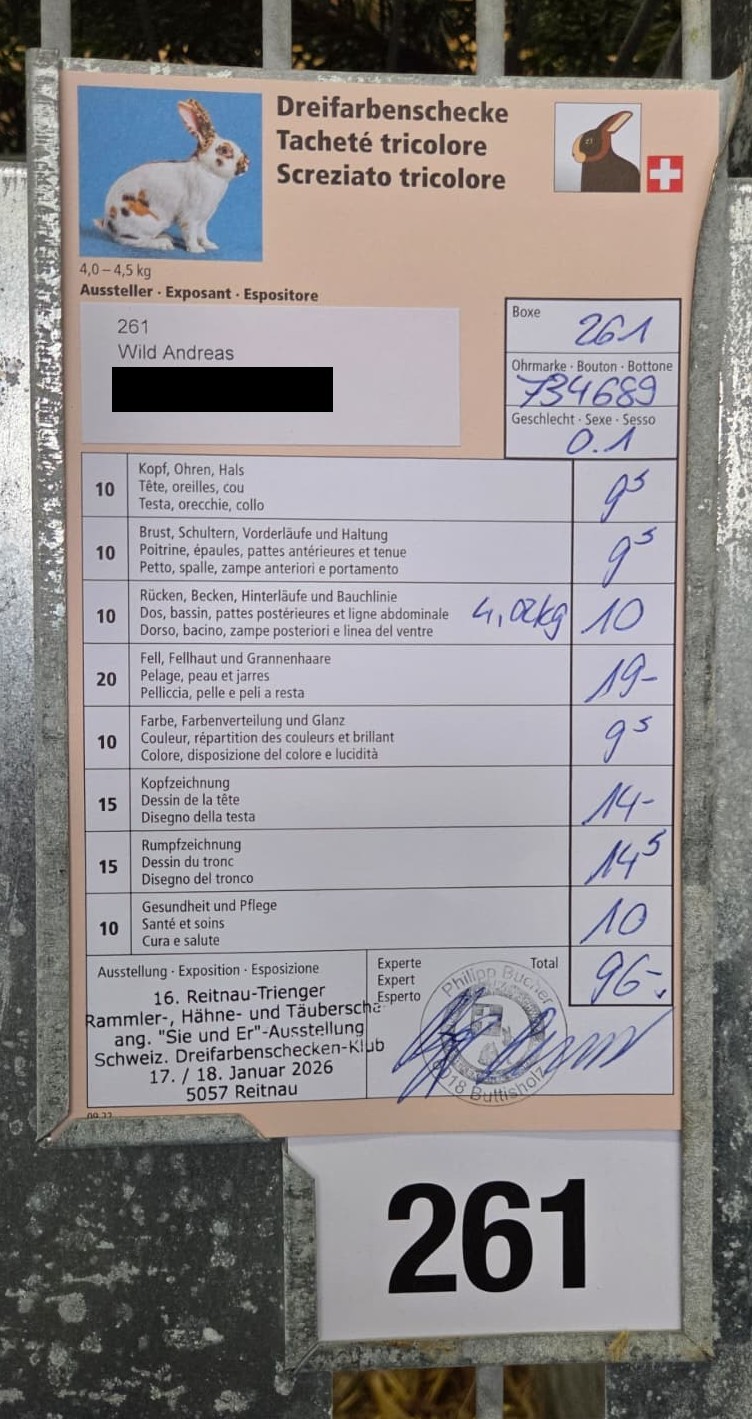 Dreifarbenschecke
Tacheté tricolore
Screziato tricolore
4,0–4,5 kg
Aussteller · Exposant · Espositore
261
Wild Andreas
Boxe
261
Ohrmarke · Bouton · Bottone
734689
Geschlecht · Sexe · Sesso
0.1
10
Kopf, Ohren, Hals
Tête, oreilles, cou
Testa, orecchie, collo
9⁵
10
Brust, Schultern, Vorderläufe und Haltung
Poitrine, épaules, pattes antérieures et tenue
Petto, spalle, zampe anteriori e portamento
9⁵
10
Rücken, Becken, Hinterläufe und Bauchlinie
Dos, bassin, pattes postérieures et ligne abdominale
Dorso, bacino, zampe posteriori e linea del ventre
10
20
Fell, Fellhaut und Grannenhaare
Pelage, peau et jarres
Pelliccia, pelle e peli a resta
19-
10
Farbe, Farbenverteilung und Glanz
Couleur, répartition des couleurs et brillant
Colore, disposizione del colore e lucidità
9⁵
15
Kopfzeichnung
Dessin de la tête
Disegno della testa
14-
15
Rumpfzeichnung
Dessin du tronc
Disegno del tronco
14⁵
10
Gesundheit und Pflege
Santé et soins
Cura e salute
10
Ausstellung · Exposition · Esposizione
16. Reitnau-Trienger
Rammler-, Hähne- und Täubersche
ang. "Sie und Er"-Ausstellung
Schweiz. Dreifarbenschecken-Klub
17. / 18. Januar 2026
5057 Reitnau
Experte
Expert
Esperto
Total
96-
Philipp Bucher
6018 Buttisholz
09.22
261